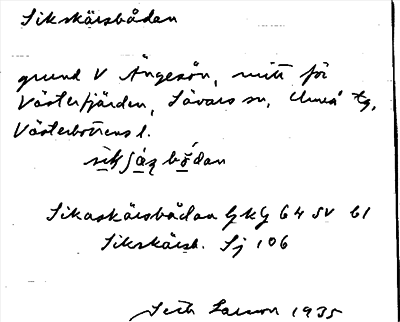 Sikskärsbådan
grund V Ängesön, mitt för
Västerfjärden, Sävars sn, Umeå tg,
Västerbottens l.
bådan
Sikaskärsbådan GKG 64 SV b1
Sikskärsb. Sj 106
Seth Larsson 1935